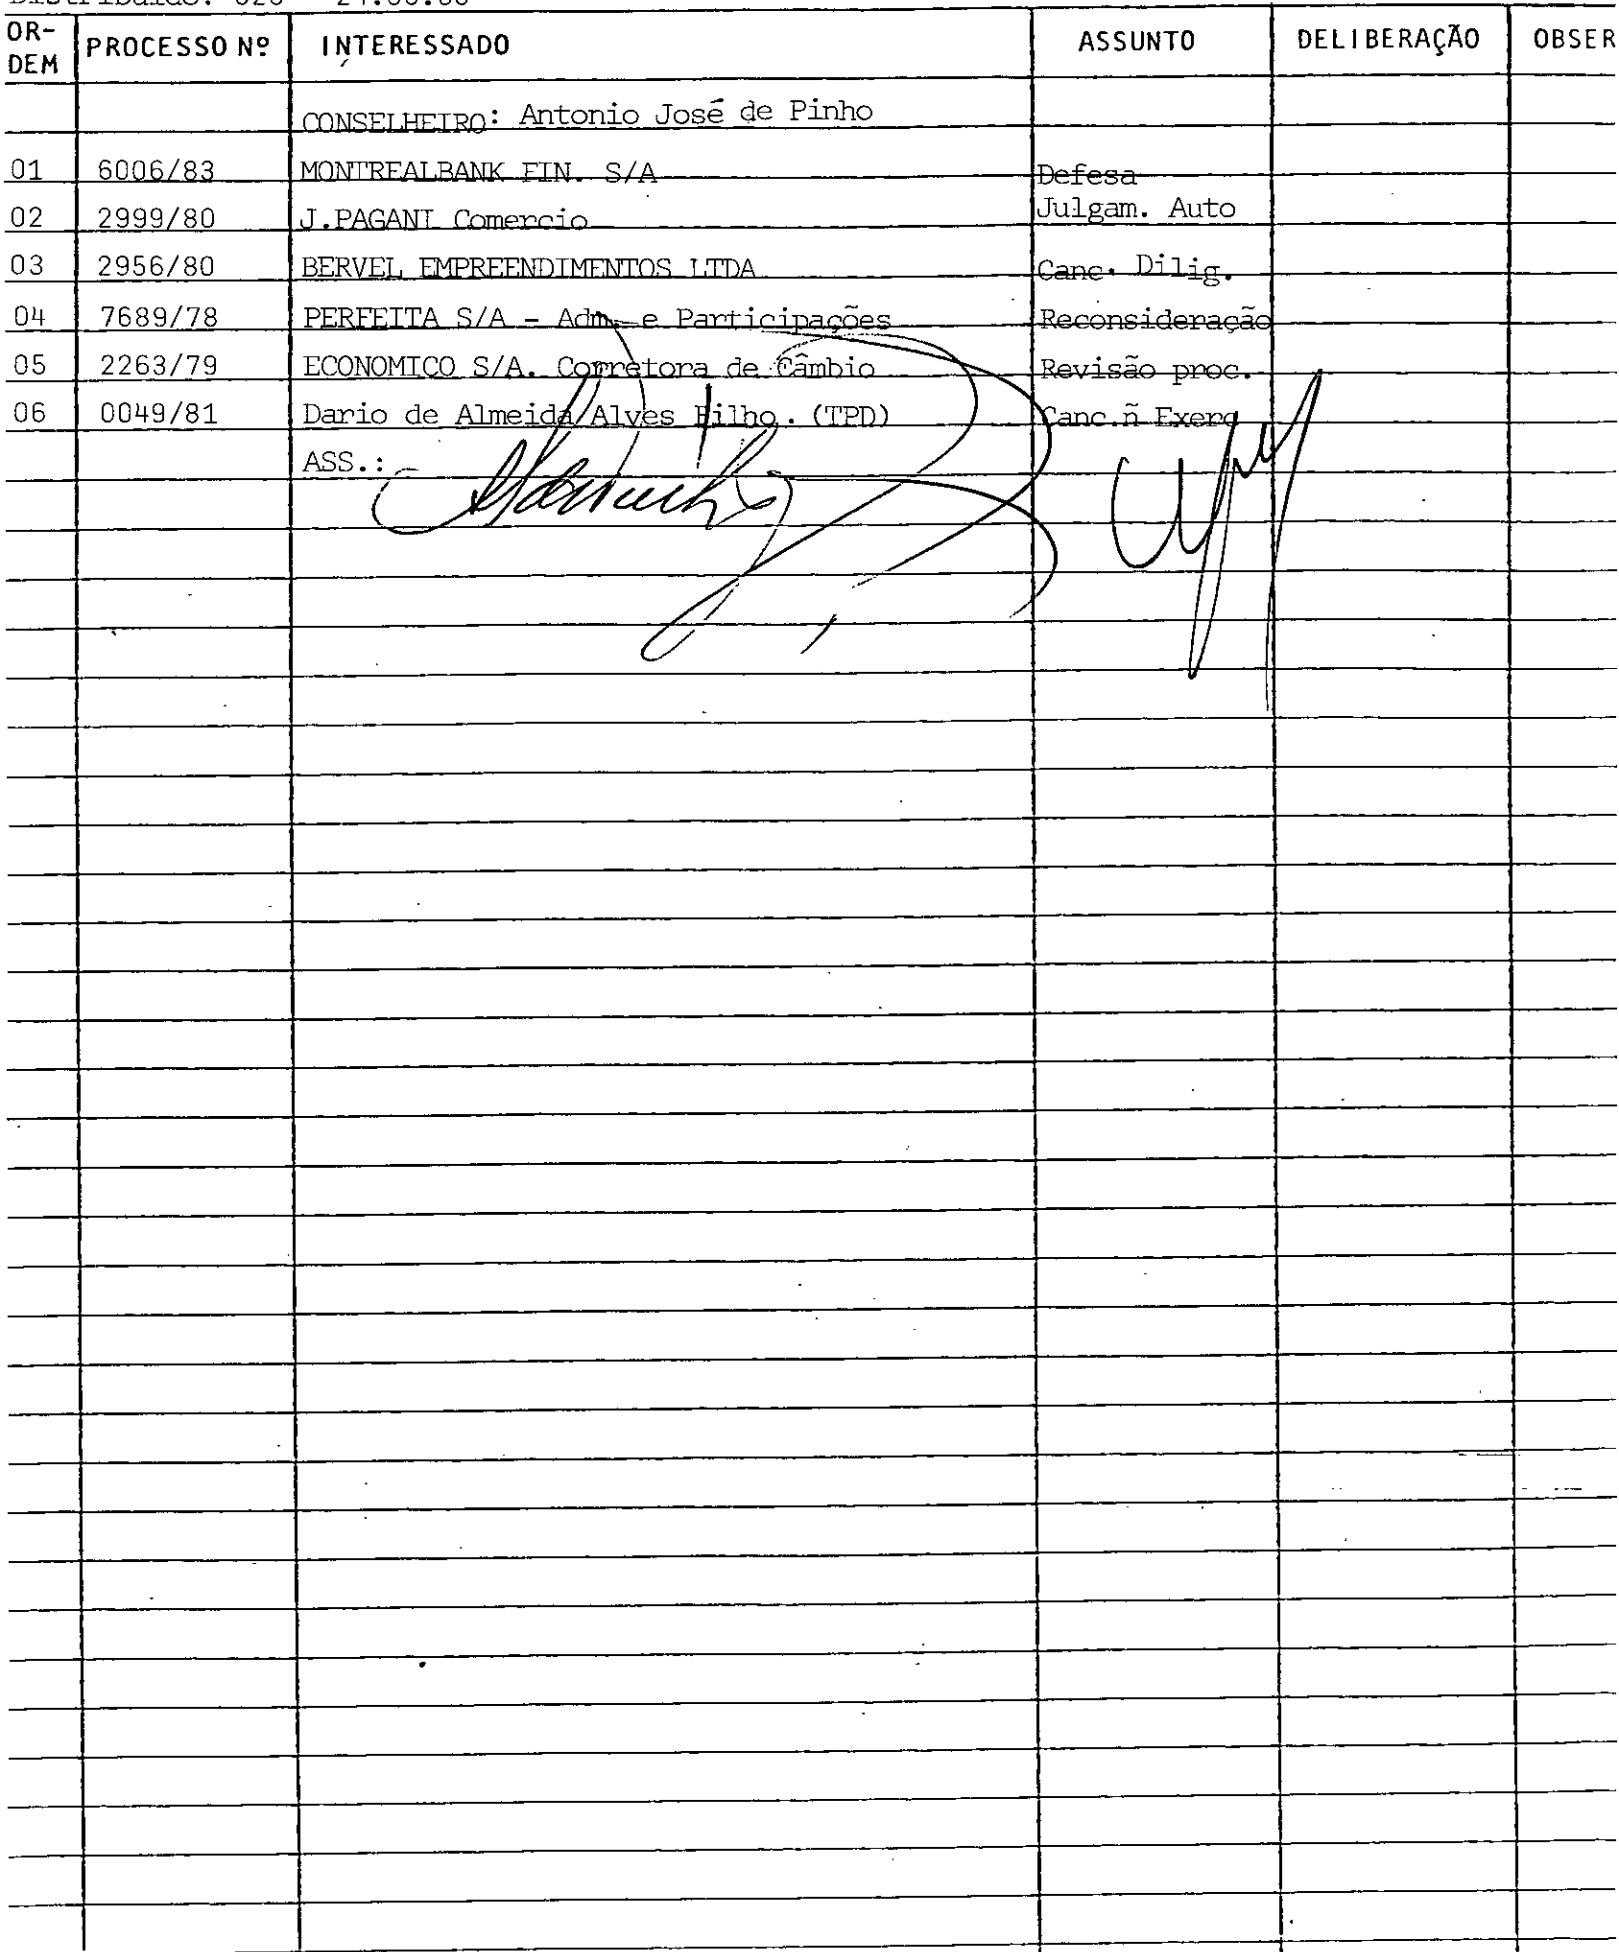 OR-DEM PROCESSO Nº INTERESSADO ASSUNTO DELIBERAÇÃO OBSER
CONSELHEIRO: Antonio José de Pinho
01 6006/83 MONTREALBANK FIN. S/A Defesa
02 2999/80 J.PAGANI Comercio Julgam. Auto
03 2956/80 BERVEL EMPREENDIMENTOS LTDA Canc. Dilig.
04 7689/78 PERFEITA S/A - Adm. e Participações Reconsideração
05 2263/79 ECONOMICO S/A. Corretora de Câmbio Revisão proc.
06 0049/81 Dario de Almeida Alves Filho. (TPD) Canc.ñ Exerc
ASS.: